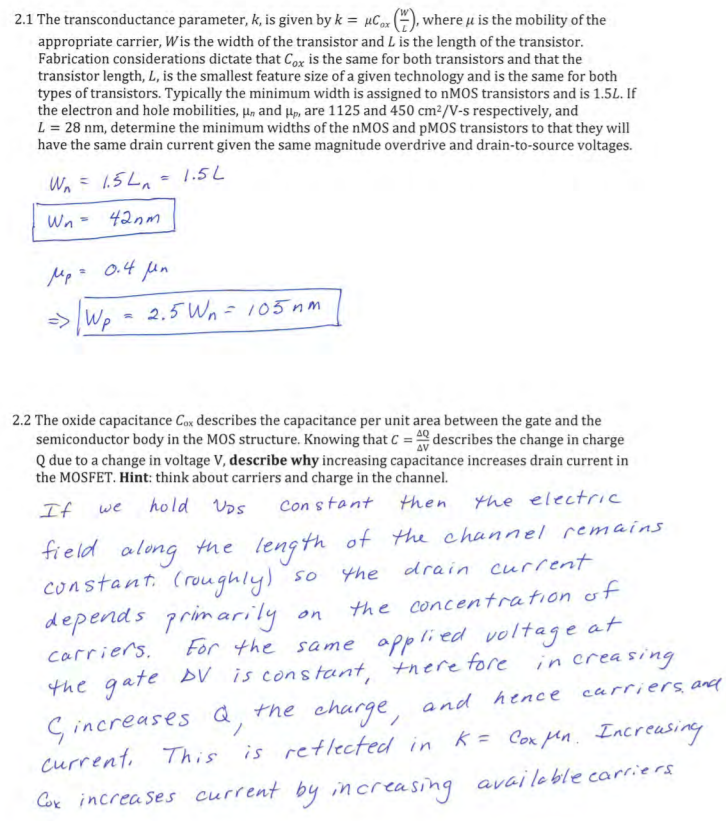 2.1 The transconductance parameter, k, is given by k = μCox (W/L), where μ is the mobility of the
appropriate carrier, W is the width of the transistor and L is the length of the transistor.
Fabrication considerations dictate that Cox is the same for both transistors and that the
transistor length, L, is the smallest feature size of a given technology and is the same for both
types of transistors. Typically the minimum width is assigned to nMOS transistors and is 1.5L. If
the electron and hole mobilities, μn and μp, are 1125 and 450 cm²/V-s respectively, and
L = 28 nm, determine the minimum widths of the nMOS and pMOS transistors to that they will
have the same drain current given the same magnitude overdrive and drain-to-source voltages.
Wn = 1.5Ln = 1.5L
Wn = 42nm
μp = 0.4 μn
=> Wp = 2.5 Wn = 105 nm
2.2 The oxide capacitance Cox describes the capacitance per unit area between the gate and the
semiconductor body in the MOS structure. Knowing that C = ΔQ/ΔV describes the change in charge
Q due to a change in voltage V, describe why increasing capacitance increases drain current in
the MOSFET. Hint: think about carriers and charge in the channel.
If we hold VDS constant then the electric
field along the length of the channel remains
constant. (roughly) so the drain current
depends primarily on the concentration of
carriers. For the same applied voltage at
the gate ΔV is constant, therefore increasing
C, increases Q, the charge, and hence carriers, and
current. This is reflected in K = Cox μn. Increasing
Cox increases current by increasing available carriers